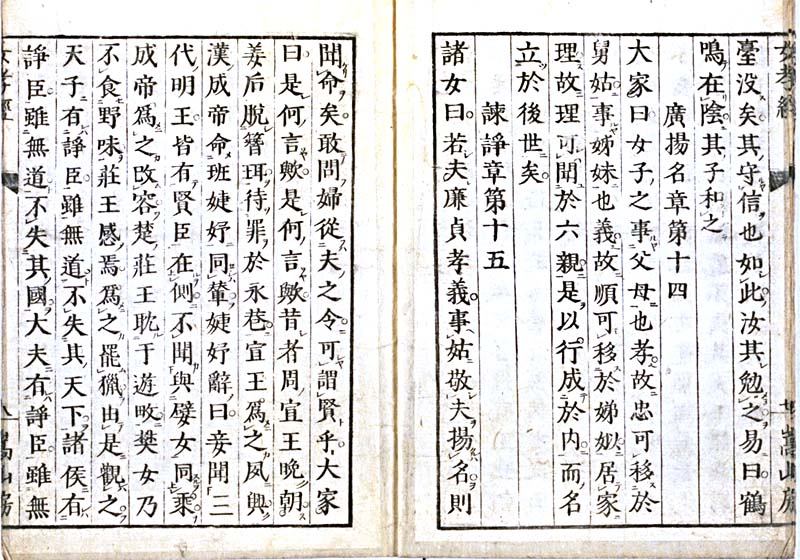 臺没矣其守信也如此汝其勉之易曰鶴
鳴在陰其子和之
廣揚名章第十四
大家曰女子之事父母也孝故忠可移於
舅姑事姊妹也義故順可移於娣姒居家
理故理可聞於六親是以行成於内而名
立於後世矣
諫諍章第十五
諸女曰若夫廉貞孝義事姑敬夫揚名則
聞命矣敢問婦從夫之令可謂賢乎大家
曰是何言歟是何言歟昔者周宣王晩朝
姜后脱簪珥待罪於永巷宣王爲之夙興
漢成帝命班婕妤同輦婕妤辭曰妾聞三
代明王皆有賢臣在側不聞與嬖女同乘
成帝爲之改容楚莊王耽于遊畋樊女乃
不食野味莊王感焉爲之罷獵由是觀之
天子有諍臣雖無道不失其天下諸侯有
諍臣雖無道不失其國大夫有諍臣雖無
女孝經
嵩山房